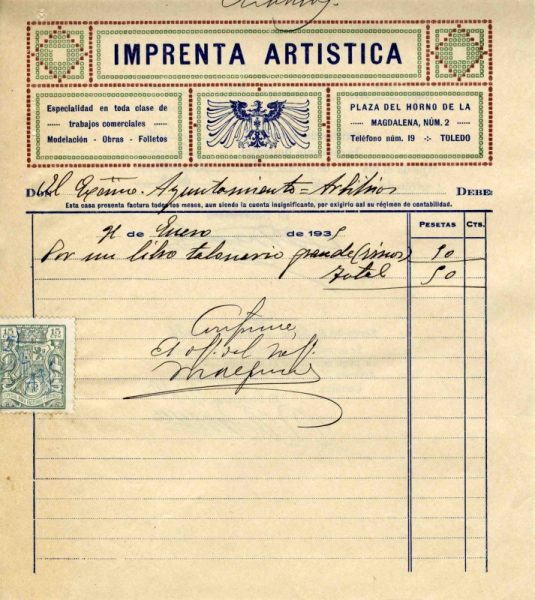 IMPRENTA ARTISTICA
Especialidad en toda clase de
trabajos comerciales
Modelación - Obras - Folletos
PLAZA DEL HORNO DE LA
MAGDALENA, NÚM. 2
Teléfono núm. 19 TOLEDO
DON El Excmo. Ayuntamiento = Arbitrios DEBE:
Esta casa presenta factura todos los meses, aun siendo la cuenta insignificante, por exigirlo así su régimen de contabilidad.
de Enero de 1935
PESETAS CTS.
Por un libro talonario grande (vinos) 50
Total 50
Conforme,
El of. del
15 15